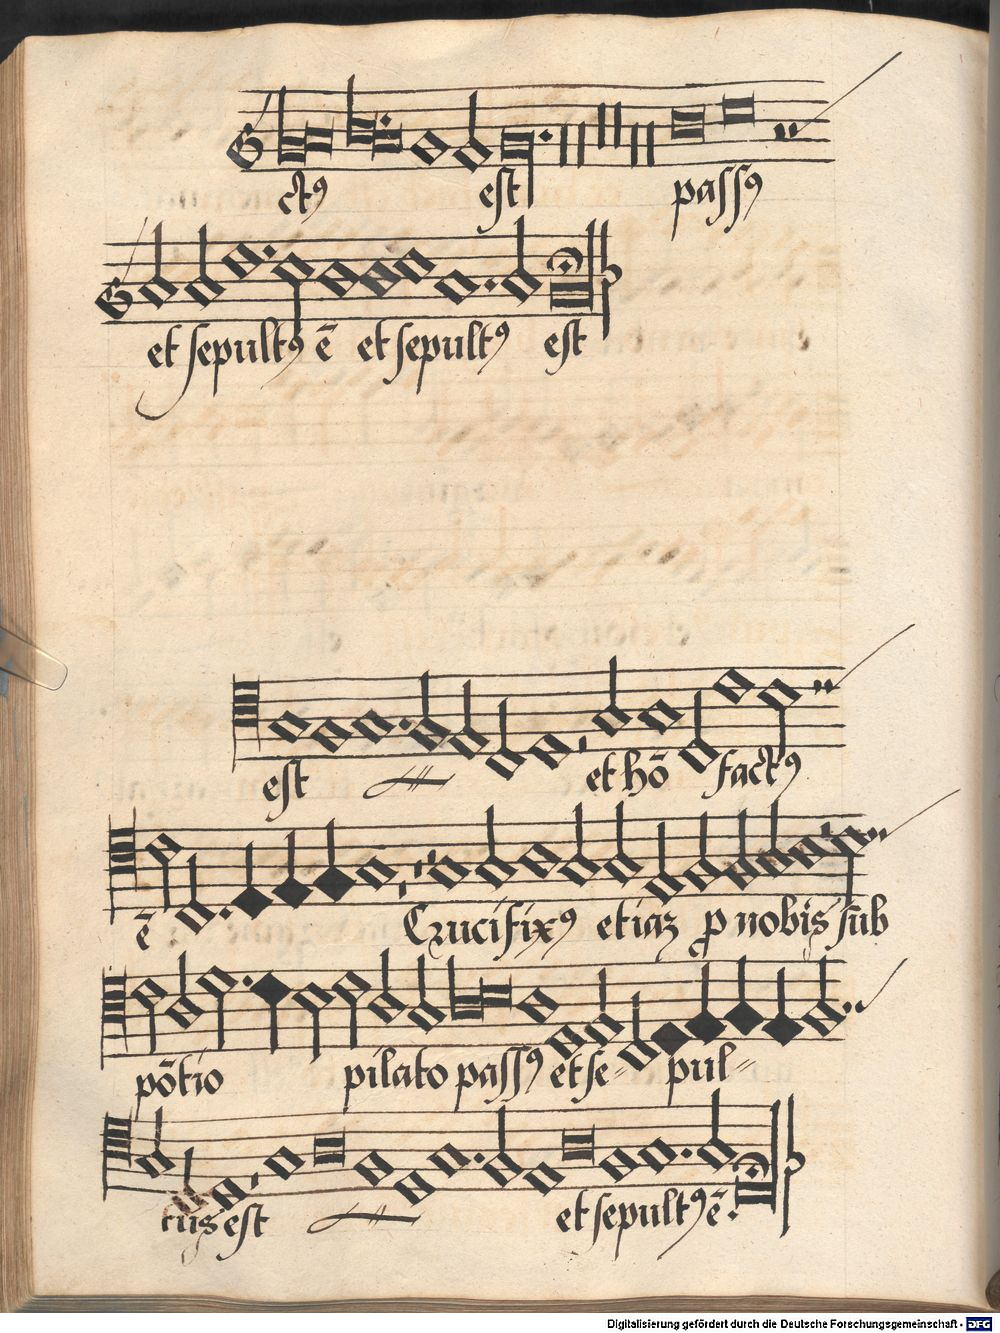 ctꝰ est passꝰ
et sepultꝰ ē et sepultꝰ est
est et hō factꝰ
ē Crucifixꝰ etiaʒ ꝓ nobis sub
pōtio pilato passꝰ et se= pul=
tus est et sepultꝰ ē.
Digitalisierung gefördert durch die Deutsche Forschungsgemeinschaft - DFG